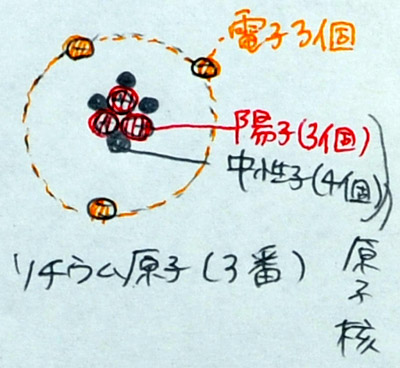 電子3個
陽子(3個)
中性子(4個)
原子核
リチウム原子(3番)